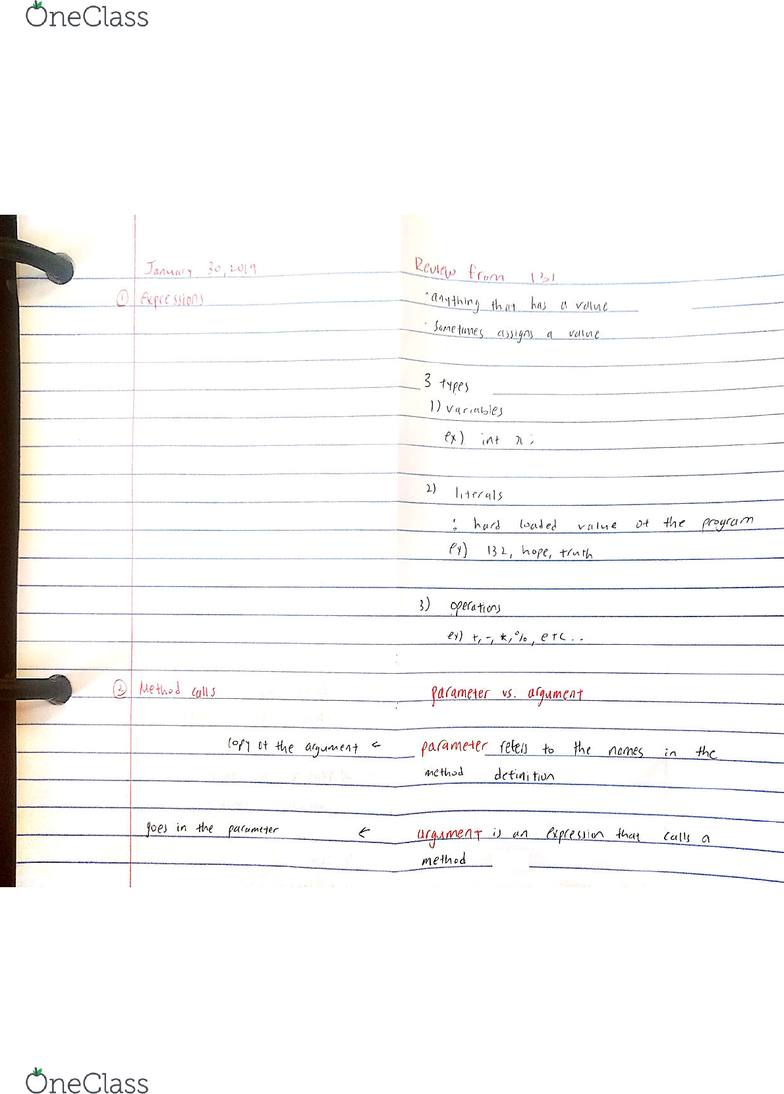 OneClass
January 30, 2019
Review from 131
① Expressions
· anything that has a value
· sometimes assigns a value
3 types
1) variables
ex) int x;
2) literals
: hard loaded value of the program
ex) 132, hope, truth
3) operations
ex) +, -, *, %, etc..
② Method calls
parameter vs. argument
copy of the argument ←
parameter refers to the names in the
method definition
goes in the parameter ←
argument is an expression that calls a
method
OneClass